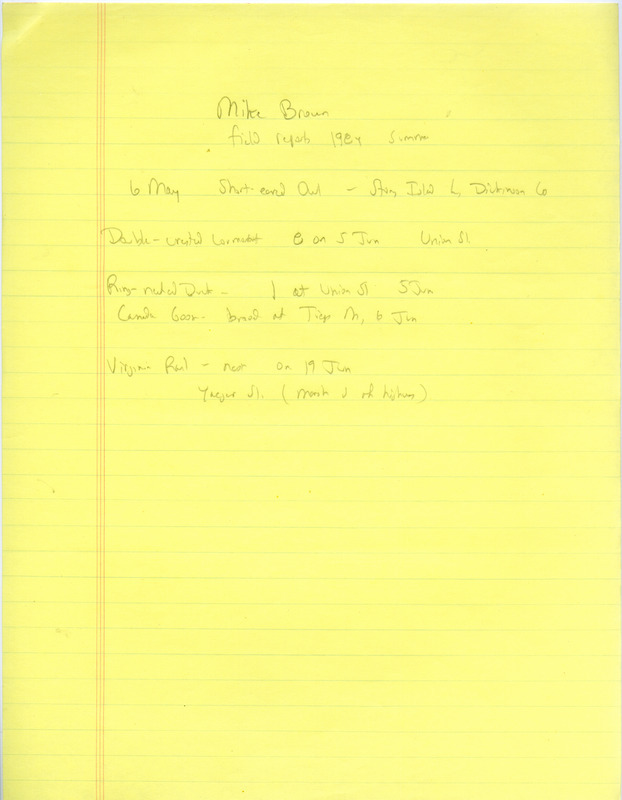 Mike Brown
field reports 1984 Summer
6 May Short-eared Owl - Story Island L, Dickinson Co
Double-crested Cormorant on 5 Jun Union Sl.
Ring-necked Duck - 1 at Union Sl 5 Jun
Canada Goose - brood at 6 Jun
Virginia Rail - nest on 19 Jun
Yaeger Sl. (marsh S of highway)